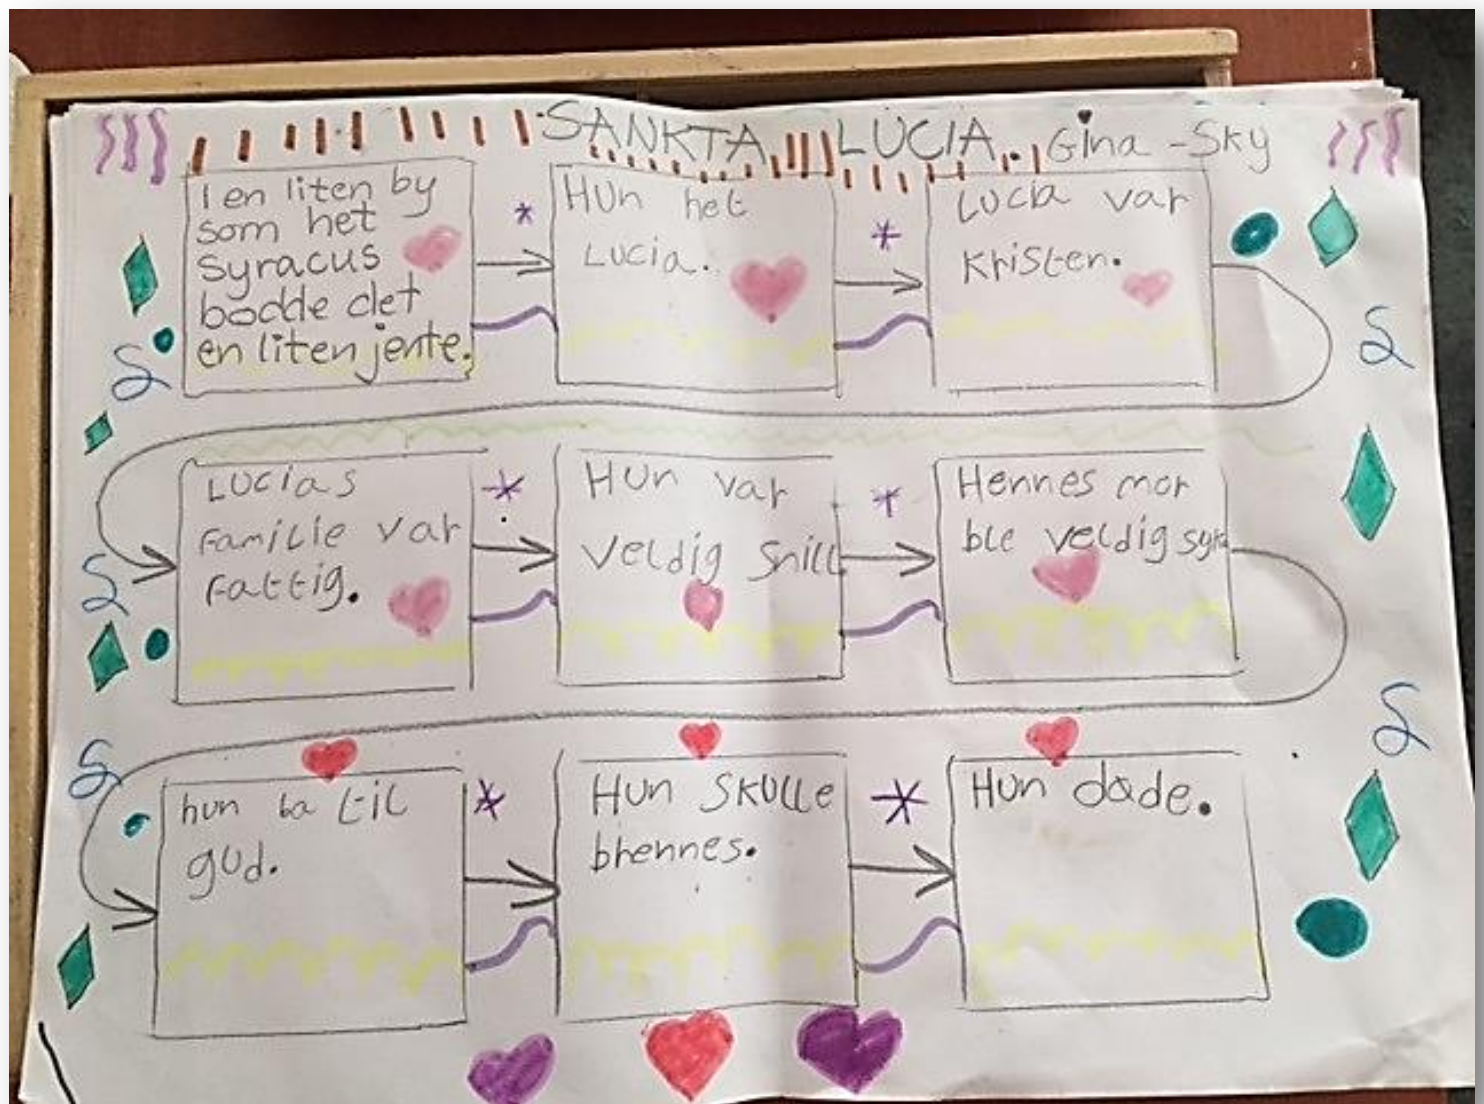 SANKTA LUCIA. Gina-Sky
I en liten by
som het
syracus
bodde det
en liten jente.
HUn het
Lucia.
Lucia var
Kristen.
LUcias
Familie var
Fattig.
HUn var
Veldig Snill
Hennes mor
ble veldig syk
hun ba til
gud.
HUn SKUlle
brennes.
HUn døde.